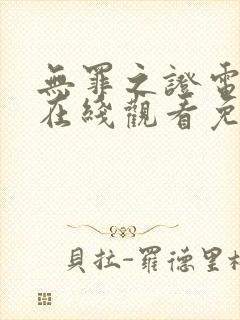 無罪之證電
在綫觀看免
貝拉-羅德里格